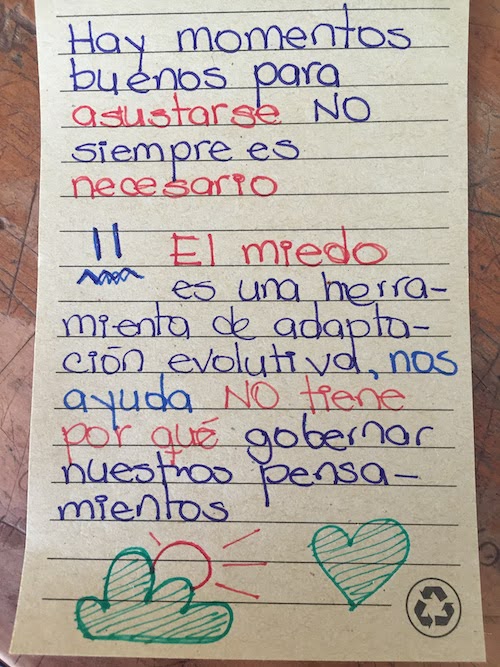 Hay momentos
buenos para
asustarse NO
siempre es
necesario
El miedo
es una herra-
mienta de adapta-
ción evolutiva, nos
ayuda NO tiene
por qué gobernar
nuestros pensa-
mientos